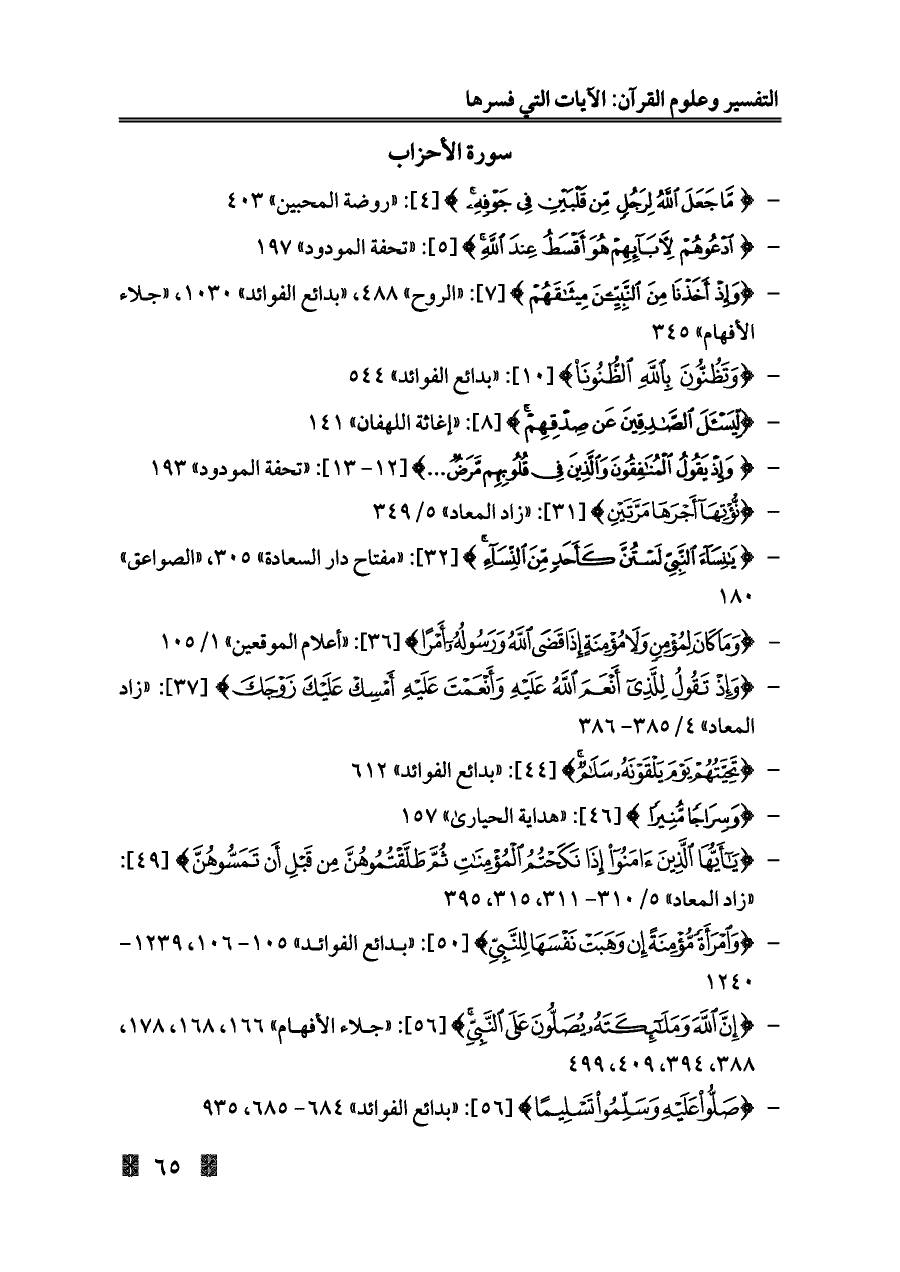 التفسير وعلوم القرآن: الآيات التي فسرها
سورة الأحزاب
- ﴿ مَّا جَعَلَ ٱللَّهُ لِرَجُلٍ مِّن قَلْبَيْنِ فِي جَوْفِهِۦۚ ﴾ [٤]: «روضة المحبين» ٤٠٣
- ﴿ ٱدْعُوهُمْ لِأٓبَآئِهِمْ هُوَ أَقْسَطُ عِندَ ٱللَّهِۚ ﴾ [٥]: «تحفة المودود» ١٩٧
- ﴿وَإِذْ أَخَذْنَا مِنَ ٱلنَّبِيِّـۧنَ مِيثَٰقَهُمْ ﴾ [٧]: «الروح» ٤٨٨، «بدائع الفوائد» ١٠٣٠، «جلاء
الأفهام» ٣٤٥
- ﴿وَتَظُنُّونَ بِٱللَّهِ ٱلظُّنُونَا۠﴾ [١٠]: «بدائع الفوائد» ٥٤٤
- ﴿لِّيَسْـَٔلَ ٱلصَّٰدِقِينَ عَن صِدْقِهِمْۚ ﴾ [٨]: «إغاثة اللهفان» ١٤١
- ﴿ وَإِذْ يَقُولُ ٱلْمُنَٰفِقُونَ وَٱلَّذِينَ فِي قُلُوبِهِم مَّرَضٌ...﴾ [١٢- ١٣]: «تحفة المودود» ١٩٣
- ﴿نُّؤْتِهَآ أَجْرَهَا مَرَّتَيْنِ﴾ [٣١]: «زاد المعاد» ٥/ ٣٤٩
- ﴿يَٰنِسَآءَ ٱلنَّبِيِّ لَسْتُنَّ كَأَحَدٍ مِّنَ ٱلنِّسَآءِۚ ﴾ [٣٢]: «مفتاح دار السعادة» ٣٠٥، «الصواعق»
١٨٠
- ﴿وَمَا كَانَ لِمُؤْمِنٍ وَلَا مُؤْمِنَةٍ إِذَا قَضَى ٱللَّهُ وَرَسُولُهُۥٓ أَمْرًا﴾ [٣٦]: «أعلام الموقعين» ١/ ١٠٥
- ﴿وَإِذْ تَقُولُ لِلَّذِيٓ أَنْعَمَ ٱللَّهُ عَلَيْهِ وَأَنْعَمْتَ عَلَيْهِ أَمْسِكْ عَلَيْكَ زَوْجَكَ﴾ [٣٧]: «زاد
المعاد» ٤/ ٣٨٥- ٣٨٦
- ﴿تَحِيَّتُهُمْ يَوْمَ يَلْقَوْنَهُۥ سَلَٰمٌۚ﴾ [٤٤]: «بدائع الفوائد» ٦١٢
- ﴿وَسِرَاجًا مُّنِيرًا ﴾ [٤٦]: «هداية الحيارىٰ» ١٥٧
- ﴿يَٰٓأَيُّهَا ٱلَّذِينَ ءَامَنُوٓا۟ إِذَا نَكَحْتُمُ ٱلْمُؤْمِنَٰتِ ثُمَّ طَلَّقْتُمُوهُنَّ مِن قَبْلِ أَن تَمَسُّوهُنَّ﴾ [٤٩]:
«زاد المعاد» ٥/ ٣١٠- ٣١١، ٣١٥، ٣٩٥
- ﴿وَٱمْرَأَةً مُّؤْمِنَةً إِن وَهَبَتْ نَفْسَهَا لِلنَّبِيِّ﴾ [٥٠]: «بدائع الفوائد» ١٠٥- ١٠٦، ١٢٣٩-
١٢٤٠
- ﴿إِنَّ ٱللَّهَ وَمَلَٰٓئِكَتَهُۥ يُصَلُّونَ عَلَى ٱلنَّبِيِّۚ﴾ [٥٦]: «جلاء الأفهام» ١٦٦، ١٦٨، ١٧٨،
٣٨٨، ٣٩٤، ٤٠٩، ٤٩٩
- ﴿صَلُّوا۟ عَلَيْهِ وَسَلِّمُوا۟ تَسْلِيمًا﴾ [٥٦]: «بدائع الفوائد» ٦٨٤- ٦٨٥، ٩٣٥
٦٥